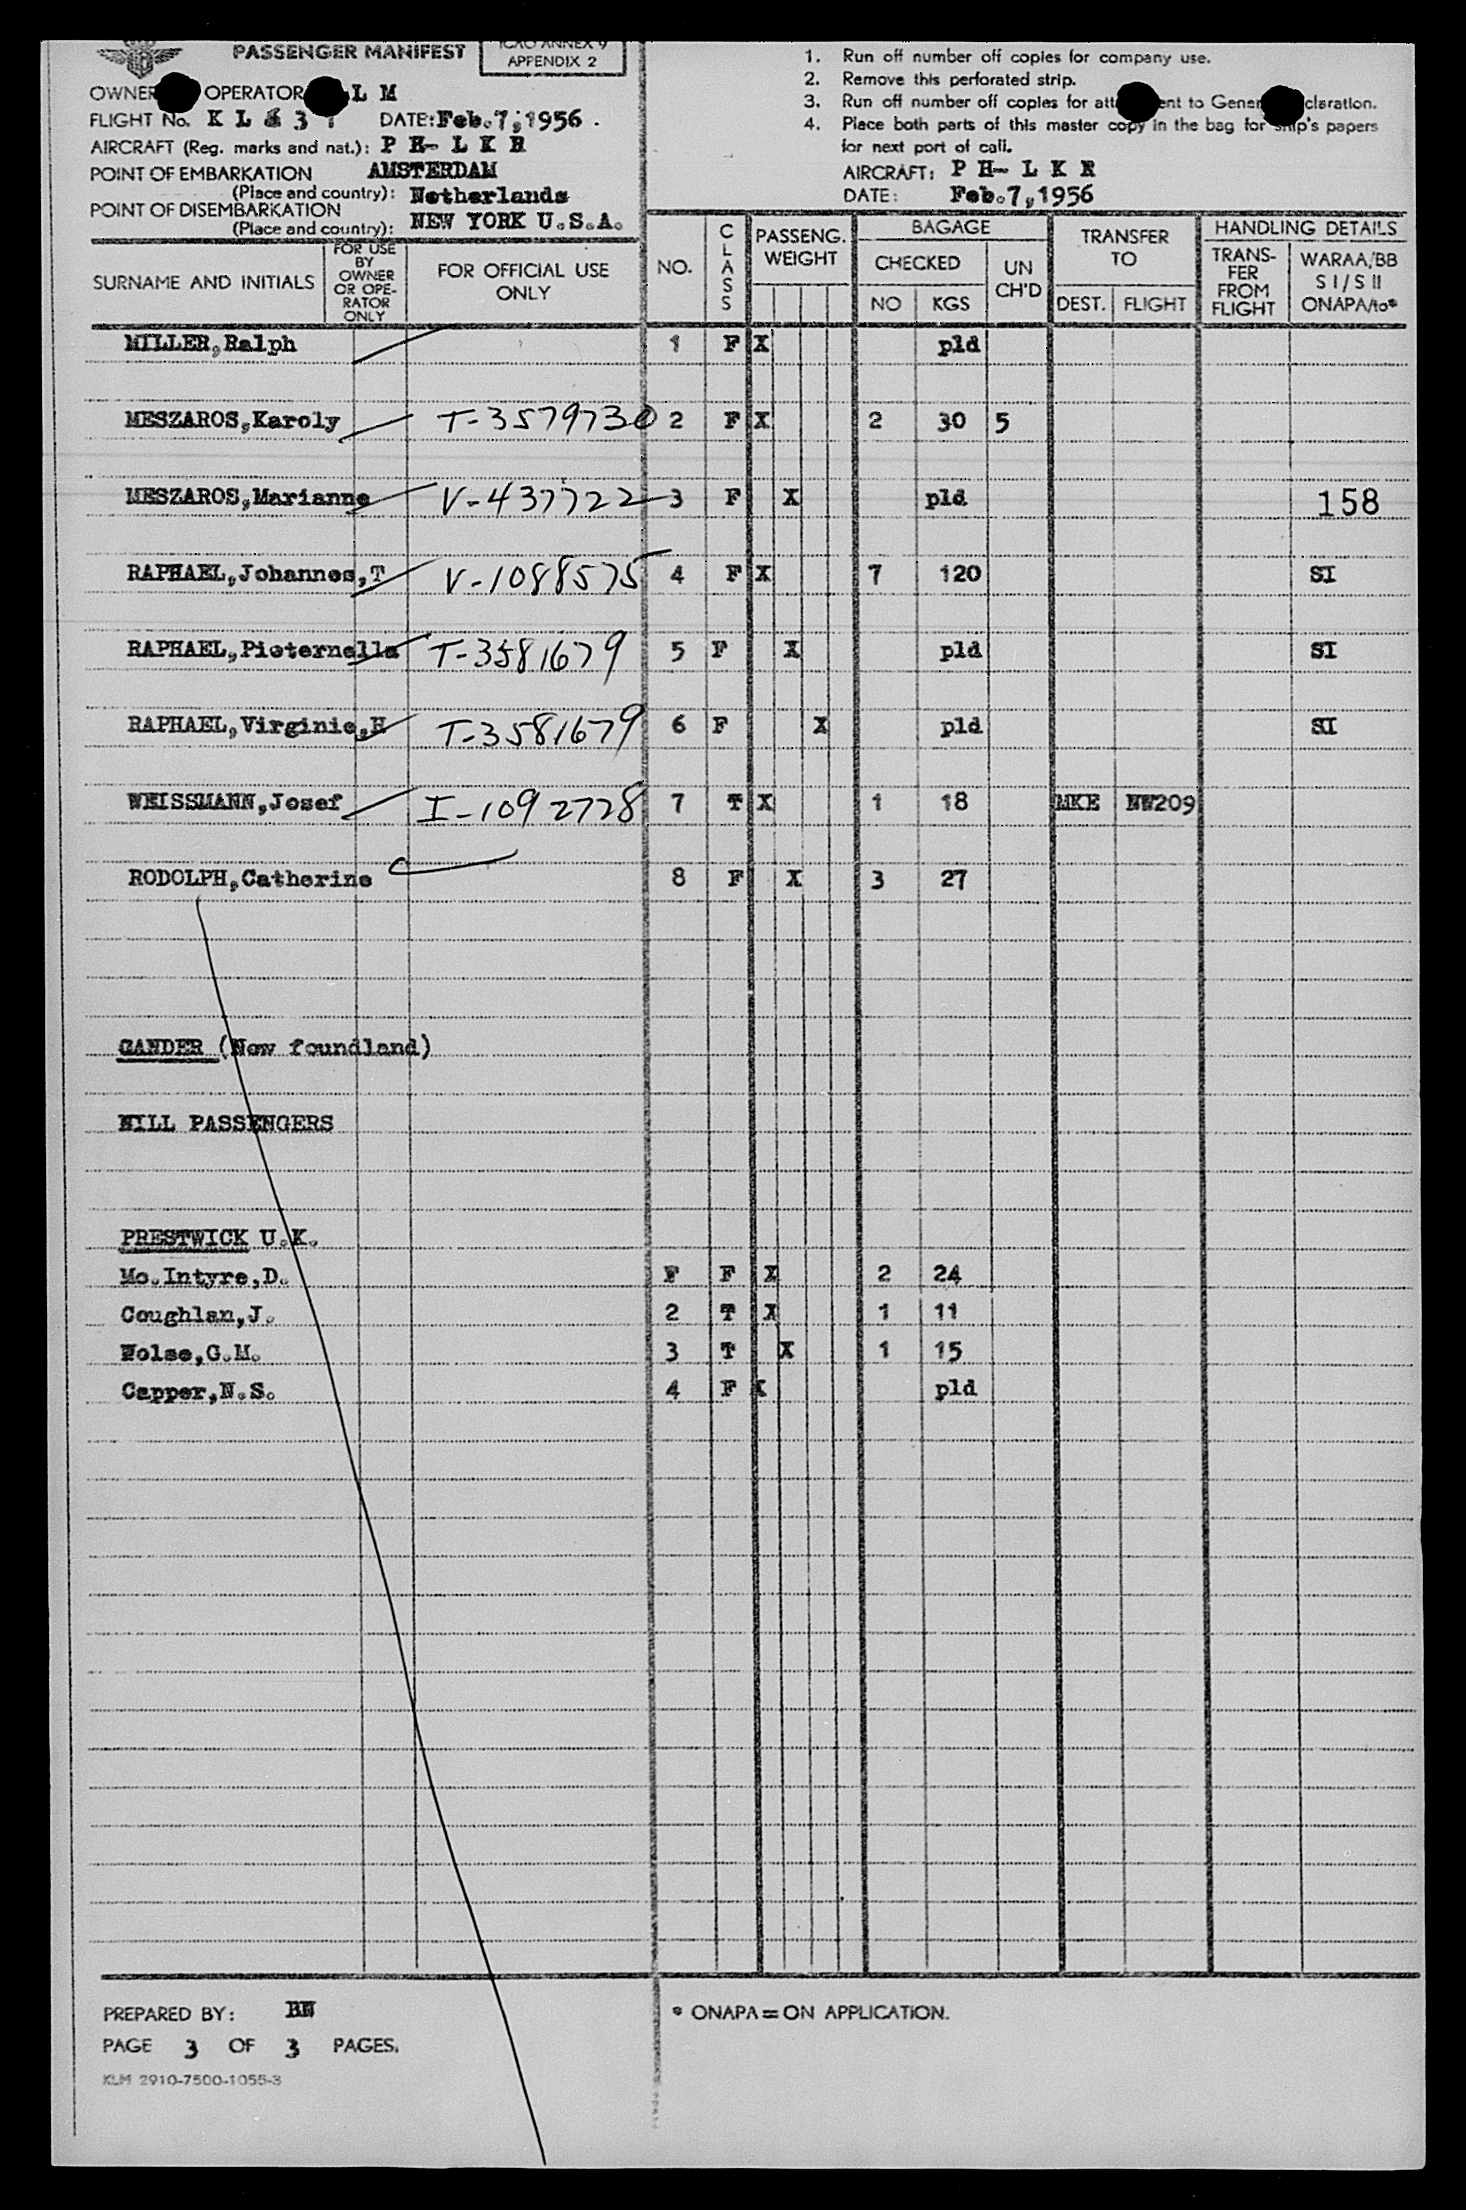 PASSENGER MANIFEST
ICAO ANNEX 9
APPENDIX 2
OWNER OPERATOR L M
FLIGHT No. K L 6 3 1 DATE: Feb.7,1956.
AIRCRAFT (Reg. marks and nat.): P H- L K R
POINT OF EMBARKATION AMSTERDAM
(Place and country): Netherlands
POINT OF DISEMBARKATION
(Place and country): NEW YORK U.S.A.
1. Run off number off copies for company use.
2. Remove this perforated strip.
3. Run off number off copies for att ent to Gener claration.
4. Place both parts of this master copy in the bag for ship's papers
for next port of call.
AIRCRAFT: P H- L K R
DATE: Feb.7,1956
SURNAME AND INITIALS
FOR USE BY OWNER OR OPE-RATOR ONLY
FOR OFFICIAL USE ONLY
NO.
CLASS
PASSENG. WEIGHT
BAGAGE
CHECKED
NO KGS
UN CH'D
TRANSFER TO
DEST. FLIGHT
HANDLING DETAILS
TRANS-FER FROM FLIGHT
WARAA/BB S I / S II ONAPA/to*
MILLER,Ralph 1 F X pld
MESZAROS,Karoly T-3579730 2 F X 2 30 5
MESZAROS,Marianne V-437722 3 F X pld 158
RAPHAEL,Johannes,T V-1088575 4 F X 7 120 SI
RAPHAEL,Pieternella T-3581679 5 F X pld SI
RAPHAEL,Virginie,H T-3581679 6 F X pld SI
WEISSMANN,Josef I-1092728 7 T X 1 18 MKE NW209
RODOLPH,Catherine 8 F X 3 27
GANDER (New foundland)
NILL PASSENGERS
PRESTWICK U.K.
Mc.Intyre,D. F F X 2 24
Coughlan,J. 2 T X 1 11
Nolse,G.M. 3 T X 1 15
Capper,N.S. 4 F X pld
PREPARED BY: BN
* ONAPA = ON APPLICATION.
PAGE 3 OF 3 PAGES.
KLM 2910-7500-1055-3